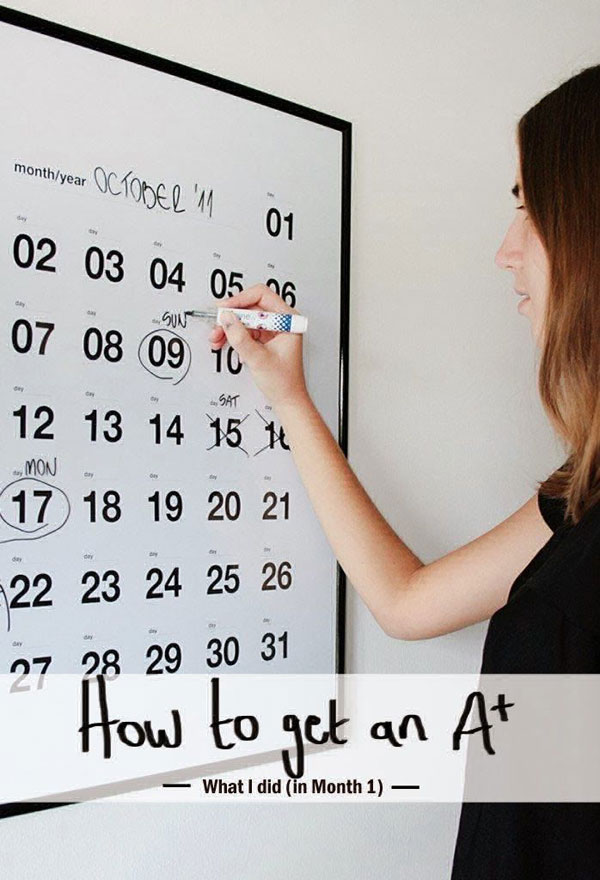 month/year OCTOBER '11
day
01
day day day day day
02 03 04 05 06
day day day SUN
07 08 09 10
day day day day SAT
12 13 14 15 16
day MON day day day day
17 18 19 20 21
day day day day day
22 23 24 25 26
day day day day day
27 28 29 30 31
How to get an A+
What I did (in Month 1)